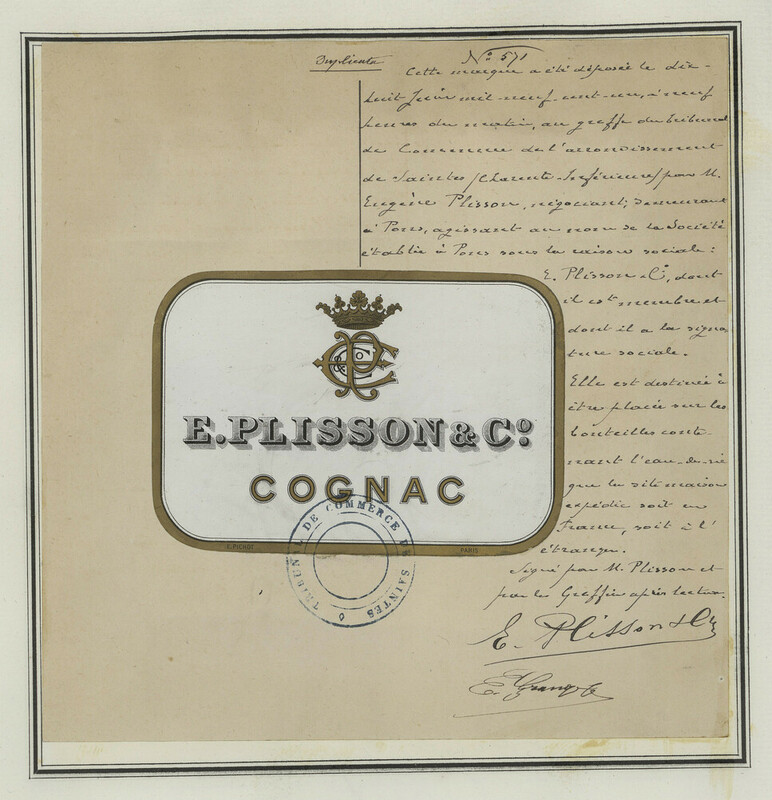 Duplicata
N° 571
Cette marque a été déposée le dix-
huit Juin mil-neuf-cent-un, à neuf
heures du matin, au greffe du tribunal
de Commerce de l'arrondissement
de Saintes (Charente-Inférieure) par M.
Eugène Plisson, négociant, demeurant
à Pons, agissant au nom de la Société
établie à Pons sous la raison sociale :
E. Plisson & Cie, dont
il est membre et
dont il a la signa-
ture sociale.
Elle est destinée à
être placée sur les
bouteilles conte-
nant l'eau-de-vie
que la dite maison
expédie soit en
France, soit à l'
étranger.
Signé par M. Plisson et
par le Greffier après lecture.
E. Plisson & Cie
E.PLISSON & Cº
COGNAC
G.PICHOT
PARIS
TRIBUNAL DE COMMERCE DE SAINTES